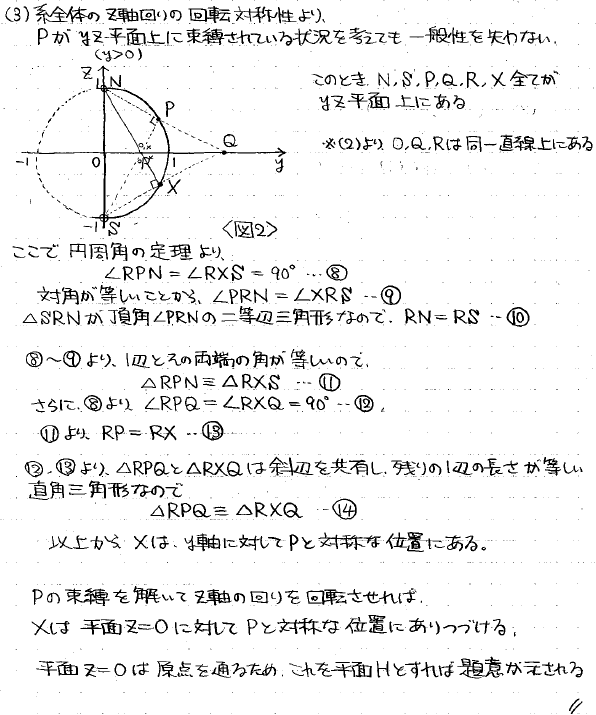 (3) 系全体の z軸回りの回転対称性より、
Pが yz平面上に束縛されている状況を考えても一般性を失わない。
(y>0)
このとき N,S,P,Q,R,X 全てが
yz平面上にある
※(2)より O,Q,Rは同一直線上にある
z
1
N
P
Q
-1
0
1
y
X
-1
S
<図2>
ここで 円周角の定理より、
∠RPN = ∠RXS = 90° … ⑧
対角が等しいことから、∠PRN = ∠XRS … ⑨
△SRNが頂角∠PRNの二等辺三角形なので、RN = RS … ⑩
⑧〜⑨より、1辺とその両端の角が等しいので、
△RPN ≡ △RXS … ⑪
さらに、⑧より ∠RPQ = ∠RXQ = 90° … ⑫,
⑪より RP = RX … ⑬
⑫, ⑬より、△RPQと△RXQは斜辺を共有し、残りの1辺の長さが等しい
直角三角形なので
△RPQ ≡ △RXQ … ⑭
以上から Xは、y軸に対してPと対称な位置にある。
Pの束縛を解いて z軸の回りを回転させれば、
Xは 平面z=0に対してPと対称な位置にありつづける。
平面z=0は 原点を通るため、これを平面Hとすれば題意が示される